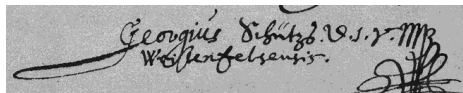 Georgius Schütz D. s. r. mp
Weissenfelsensis.